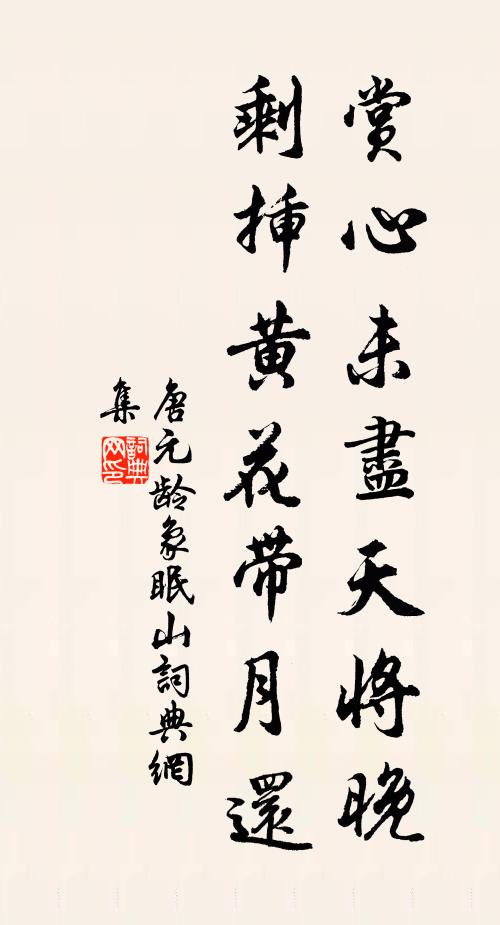 賞心未盡天將晚
剩插黃花帶月還
唐元龄象眠山詞典網
集
詞典
网印